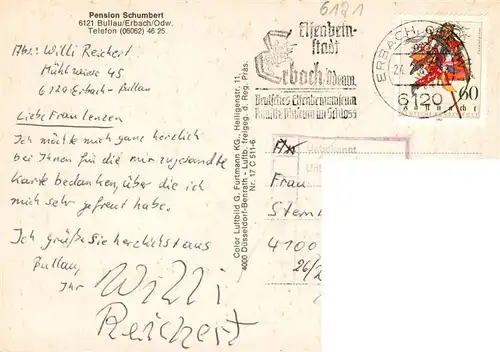 Pension Schumbert
6121 Bullau/Erbach/Odw.
Telefon (06062) 46 25
6121
Abs.: Willi Reichert
Mühlwiese 45
6120 Erbach-Bullau
Liebe Frau Lenzen
Ich möchte mich ganz herzlich
bei Ihnen für die mir zugesandte
Karte bedanken, über die ich
mich sehr gefreut habe.
Ich grüße Sie herzlichst aus
Bullau,
Ihr Willi
Reichert
Color Luftbild G. Furtmann KG., Heiligenstr. 11,
4000 Düsseldorf-Benrath - Luftb. freigeg. d. Reg. Präs.
Nr. 17 C 511-6
Elfenbein-
stadt
Erbach/Odenw.
Deutsches Elfenbeinmuseum
im Schloss
ERBACH
6120
60
Frau
Stern
4100
26/2